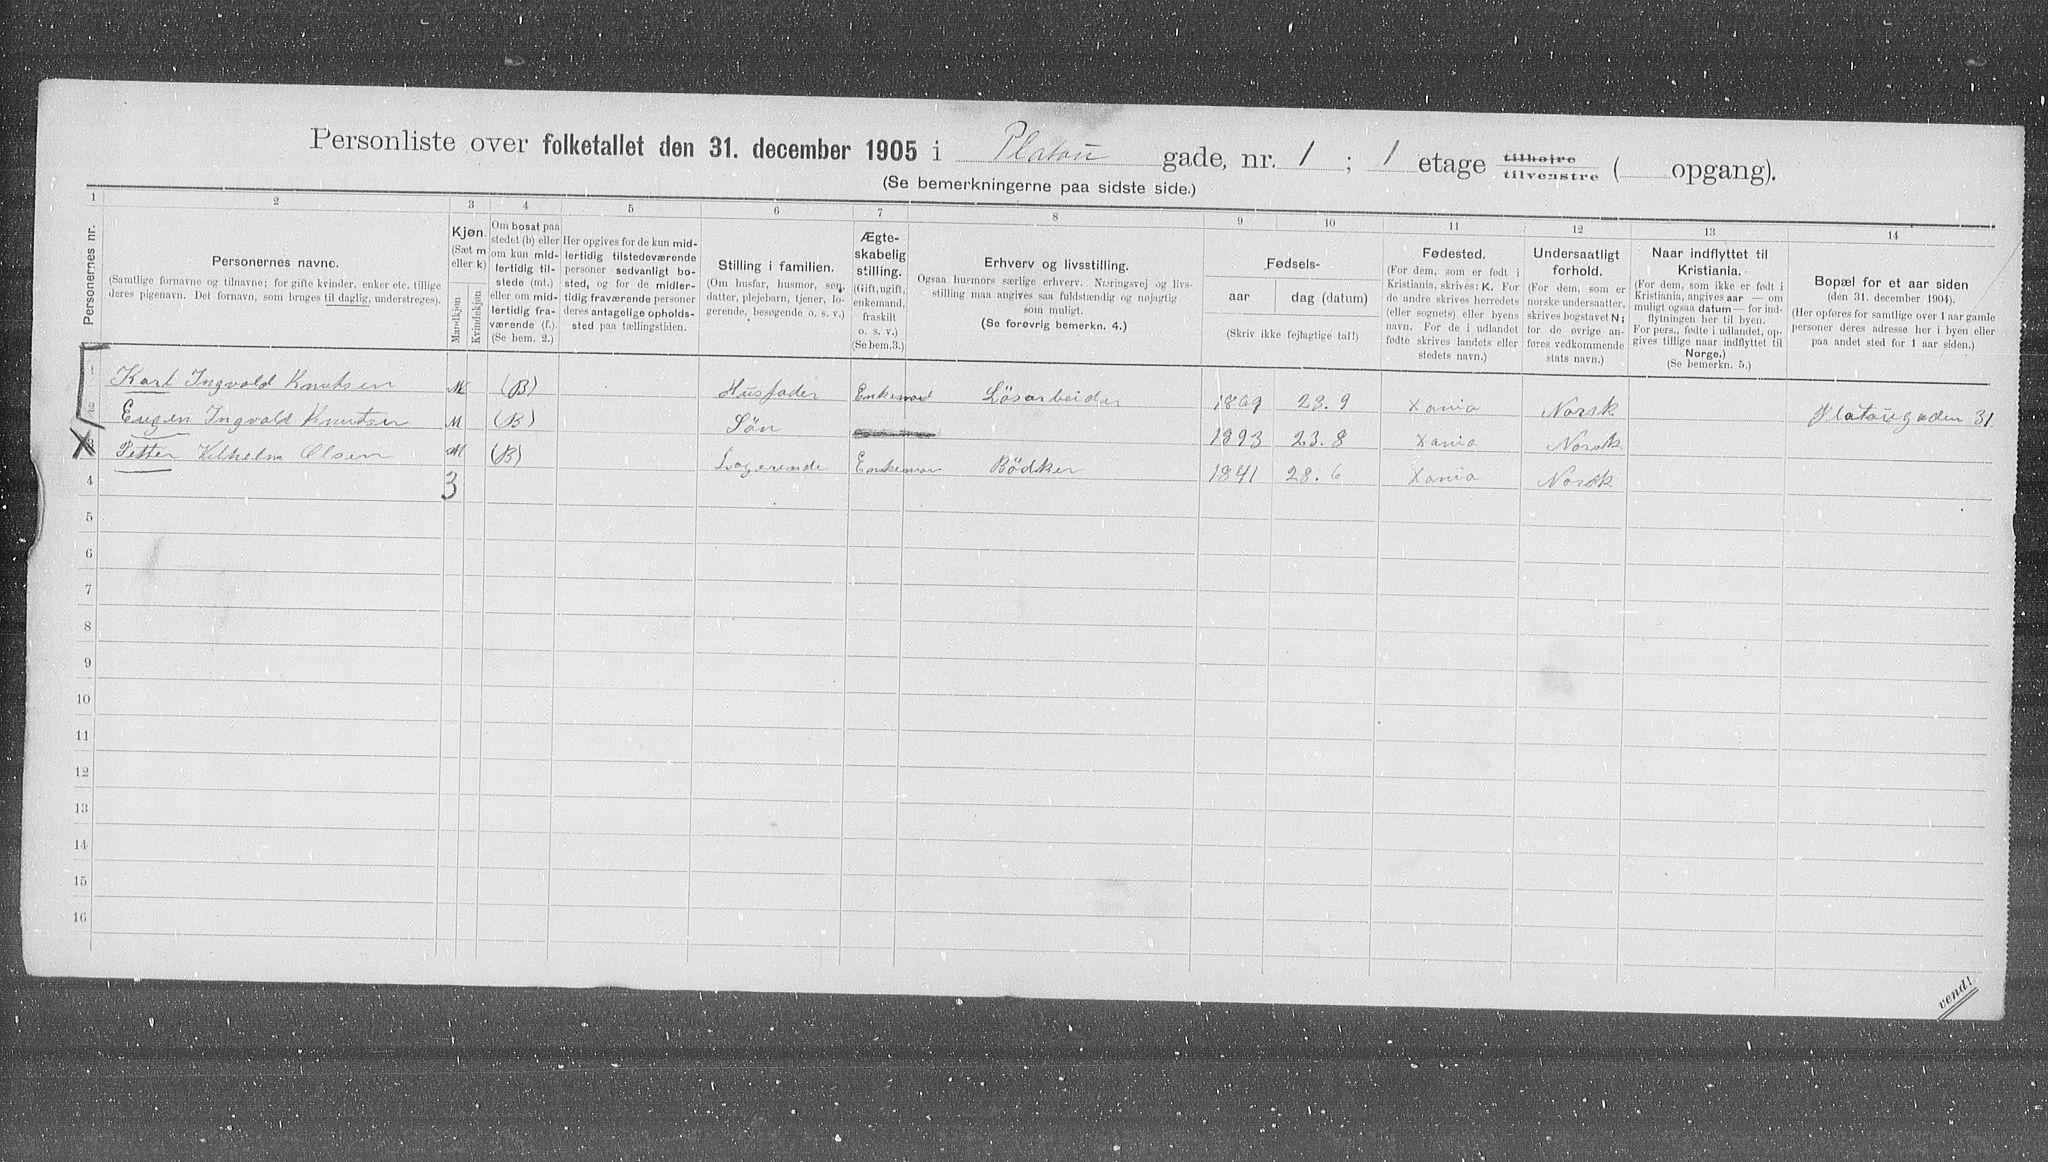 Personliste over folketallet den 31. december 1905 i Platou gade, nr. 1 ; 1 etage tilhøire tilvenstre ( opgang).
(Se bemerkningerne paa sidste side.)
1 2 3 4 5 6 7 8 9 10 11 12 13 14
Personernes nr.
Personernes navne.
(Samtlige fornavne og tilnavne; for gifte kvinder, enker etc. tillige
deres pigenavn. Det fornavn, som bruges til daglig, understreges).
Kjøn.
(Sæt m
eller k)
Mandkjøn
Kvindekjøn
Om bosat paa
stedet (b) eller
om kun mid-
lertidig til-
stede (mt.)
eller om mid-
lertidig fra-
værende (f.).
(Se bem. 2.)
Her opgives for de kun mid-
lertidig tilstedeværende
personer sedvanligt bo-
sted, og for de midler-
tidig fraværende personer
deres antagelige opholds-
sted paa tællingstiden.
Stilling i familien.
(Om husfar, husmor, søn,
datter, plejebarn, tjener, lo-
gerende, besøgende o. s. v.)
Ægte-
skabelig
stilling.
(Gift, ugift,
enkemand,
fraskilt
o. s. v.)
(Se bem. 3.)
Erhverv og livsstilling.
Ogsaa husmors særlige erhverv. Næringsvej og livs-
stilling maa angives saa fuldstændig og nøjagtig
som muligt.
(Se forøvrig bemerkn. 4.)
Fødsels-
aar
dag (datum)
(Skriv ikke fejlagtige tal!)
Fødested.
(For dem, som er født i
Kristiania, skrives: K. For
de andre skrives herredets
(eller sognets) eller byens
navn. For de i udlandet
fødte skrives landets eller
stedets navn.)
Undersaatligt
forhold.
(For dem, som er
norske undersaatter,
skrives bogstavet N;
for de øvrige an-
føres vedkommende
stats navn.)
Naar indflyttet til
Kristiania.
(For dem, som ikke er født i
Kristiania, angives aar — om
muligt ogsaa datum — for ind-
flytningen her til byen.
For pers., fødte i udlandet, op-
gives tillige naar indflyttet til
Norge.)
(Se bemerkn. 5.)
Bopæl for et aar siden
(den 31. december 1904).
(Her opføres for samtlige over 1 aar gamle
personer deres adresse her i byen eller
paa andet sted for 1 aar siden.)
1 Karl Ingvald Knutsen M (B) Husfader Enkemand Løsarbeider 1869 23.9 Xania Norsk Platougaden 31
2 Eugen Ingvald Knutsen M (B) Søn 1893 23.8 Xania Norsk
3 Petter Vilhelm Olsen M (B) Logerende Enkeman Bödker 1841 28.6 Xania Norsk
4 3
5
6
7
8
9
10
11
12
13
14
15
16
vend!